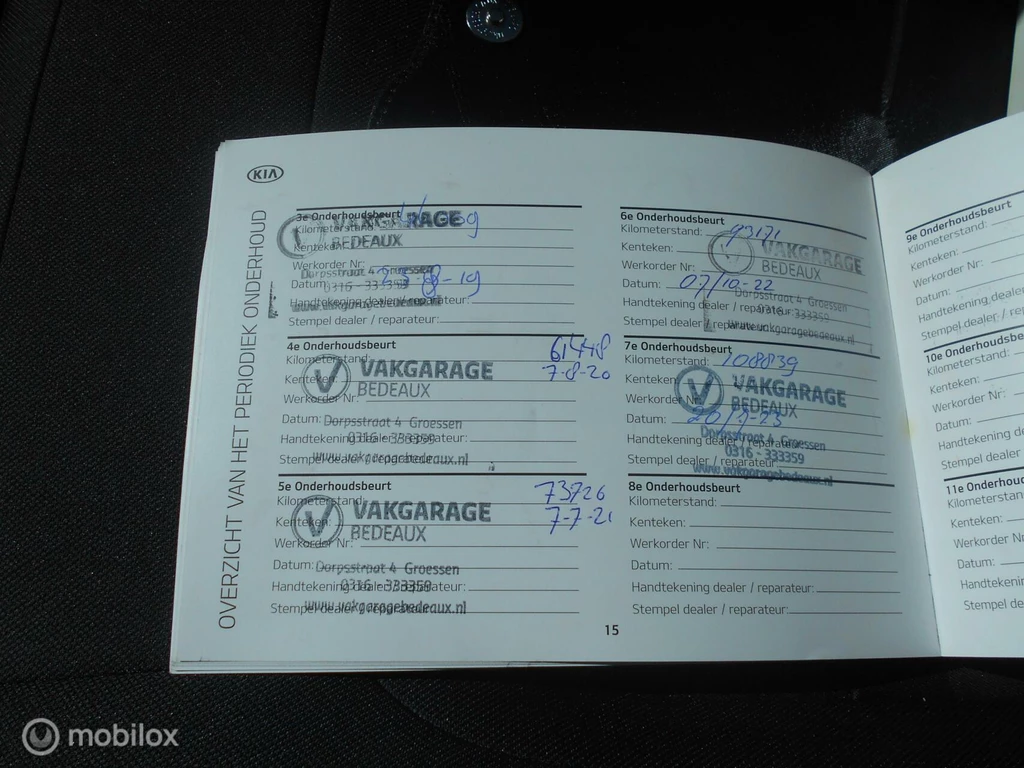 KIA
OVERZICHT VAN HET PERIODIEK ONDERHOUD
3e Onderhoudsbeurt
Kilometerstand:
VAKGARAGE
Kenteken:
BEDEAUX
Werkorder Nr:
Dorpsstraat 4 Groessen
Datum: -8-19
0316 - 333359
Handtekening dealer / reparateur:
www.vakgaragebedeaux.nl
Stempel dealer / reparateur:
4e Onderhoudsbeurt
61448
Kilometerstand:
VAKGARAGE
7-8-20
Kenteken:
BEDEAUX
Werkorder Nr:
Datum:
Dorpsstraat 4 Groessen
Handtekening dealer / reparateur:
0316 - 333359
Stempel dealer / reparateur:
www.vakgaragebedeaux.nl
5e Onderhoudsbeurt
73726
Kilometerstand:
VAKGARAGE
7-7-21
Kenteken:
BEDEAUX
Werkorder Nr:
Datum:
Dorpsstraat 4 Groessen
Handtekening dealer / reparateur:
0316 - 333359
Stempel dealer / reparateur:
www.vakgaragebedeaux.nl
6e Onderhoudsbeurt
Kilometerstand: 93171
Kenteken:
VAKGARAGE
Werkorder Nr:
BEDEAUX
Datum: 07/10-22
Dorpsstraat 4 Groessen
Handtekening dealer / reparateur:
0316 - 333359
Stempel dealer / reparateur:
www.vakgaragebedeaux.nl
7e Onderhoudsbeurt
Kilometerstand: 108839
Kenteken:
VAKGARAGE
Werkorder Nr:
BEDEAUX
Datum:
Dorpsstraat 4 Groessen
Handtekening dealer / reparateur:
0316 - 333359
Stempel dealer / reparateur:
www.vakgaragebedeaux.nl
8e Onderhoudsbeurt
Kilometerstand:
Kenteken:
Werkorder Nr:
Datum:
Handtekening dealer / reparateur:
Stempel dealer / reparateur:
15
9e Onderhoudsbeurt
Kilometerstand:
Kenteken:
Werkorder Nr:
Datum:
Handtekening dealer
Stempel dealer / re
10e Onderhoudsbe
Kilometerstand:
Kenteken:
Werkorder Nr:
Datum:
Handtekening de
Stempel dealer
11e Onderhoud
Kilometerstan
Kenteken:
Werkorder N
Datum:
Handtekenin
Stempel de
mobilox